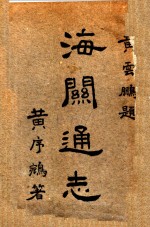 雲鵬題
海關通志
黃序鵷箸